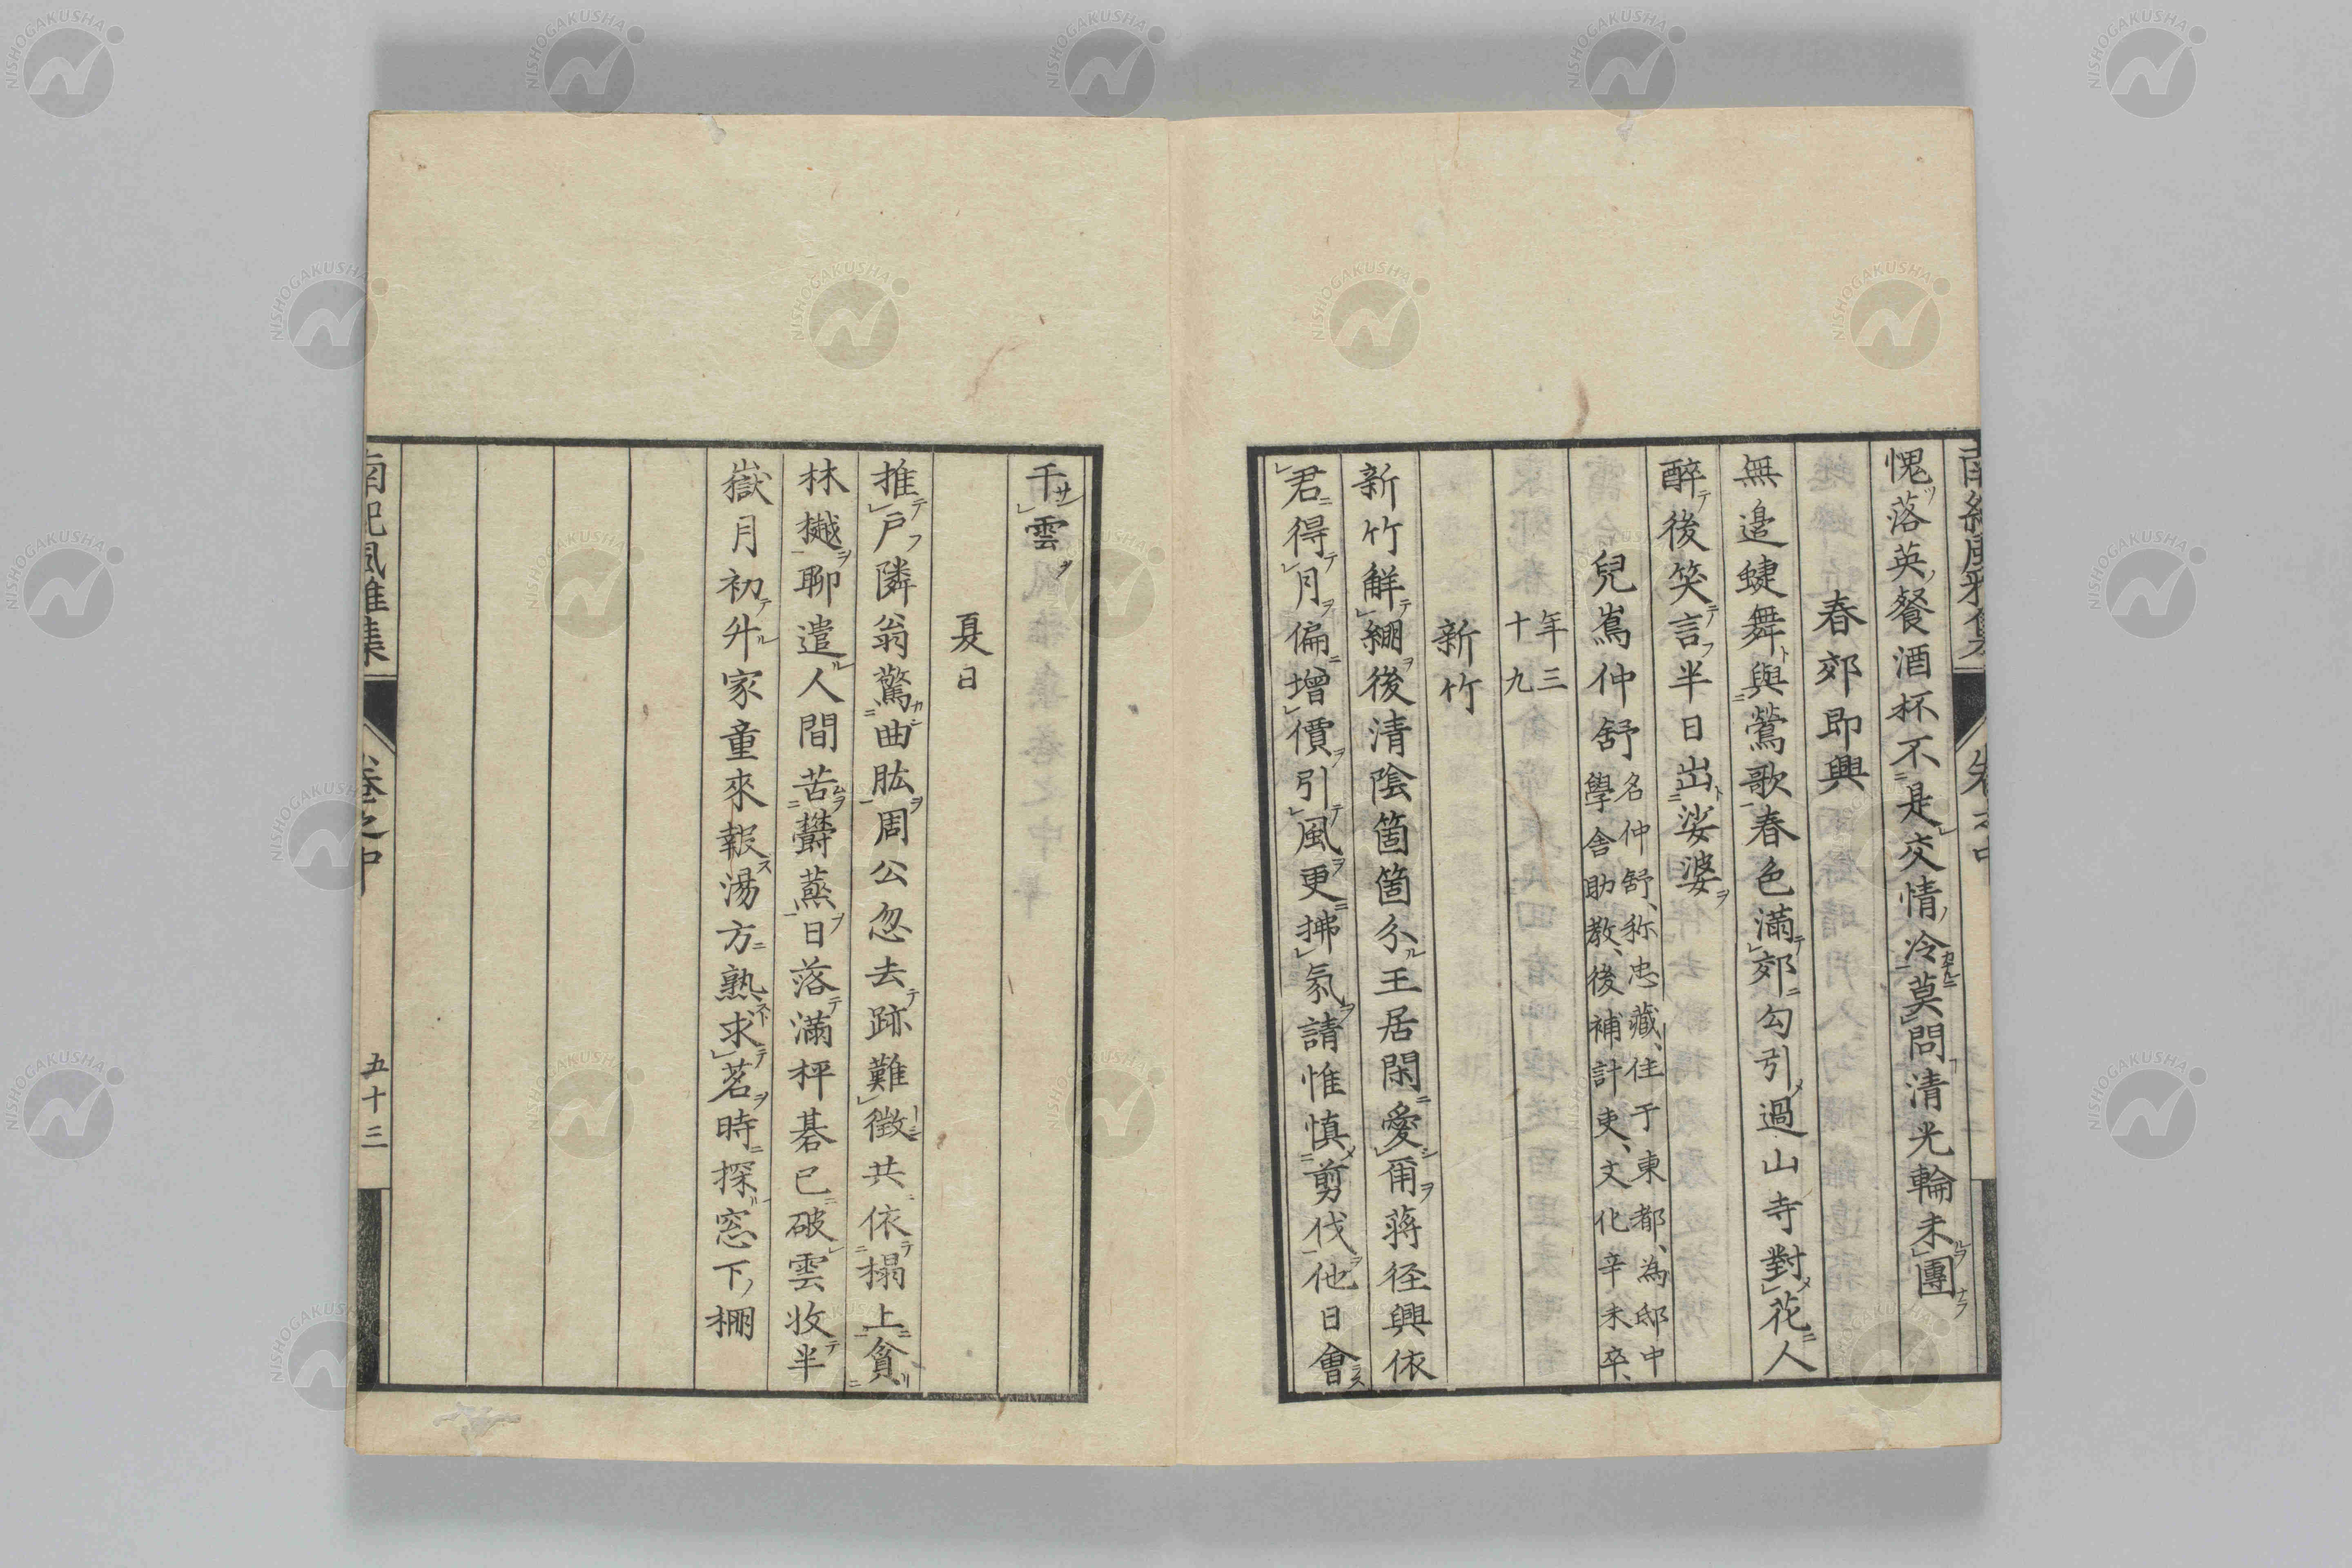 愧落英餐酒杯不是交情冷莫問清光輪未團
春郊即興
無邊蜨舞與鶯歌春色滿郊勾引過山寺對花人
醉後笑言半日出娑婆
兒嶌仲舒 名仲舒、称忠藏、住于東都、為邸中
學舍助教、後補計吏、文化辛未卒、
年三
十九
新竹
新竹觧綳後清陰箇箇分王居閑愛甯蔣径興依
君得月偏增價引風更拂氛請惟慎剪伐他日會
千雲
夏日
推戶隣翁驚曲肱周公忽去跡難徵共依榻上貪
林樾聊遣人間苦欝蒸日落滿枰棊已破雲收半
嶽月初升家童來報湯方熟求茗時探窓下棚
南紀風雅集
卷之中
五十三
NISHOGAKUSHA